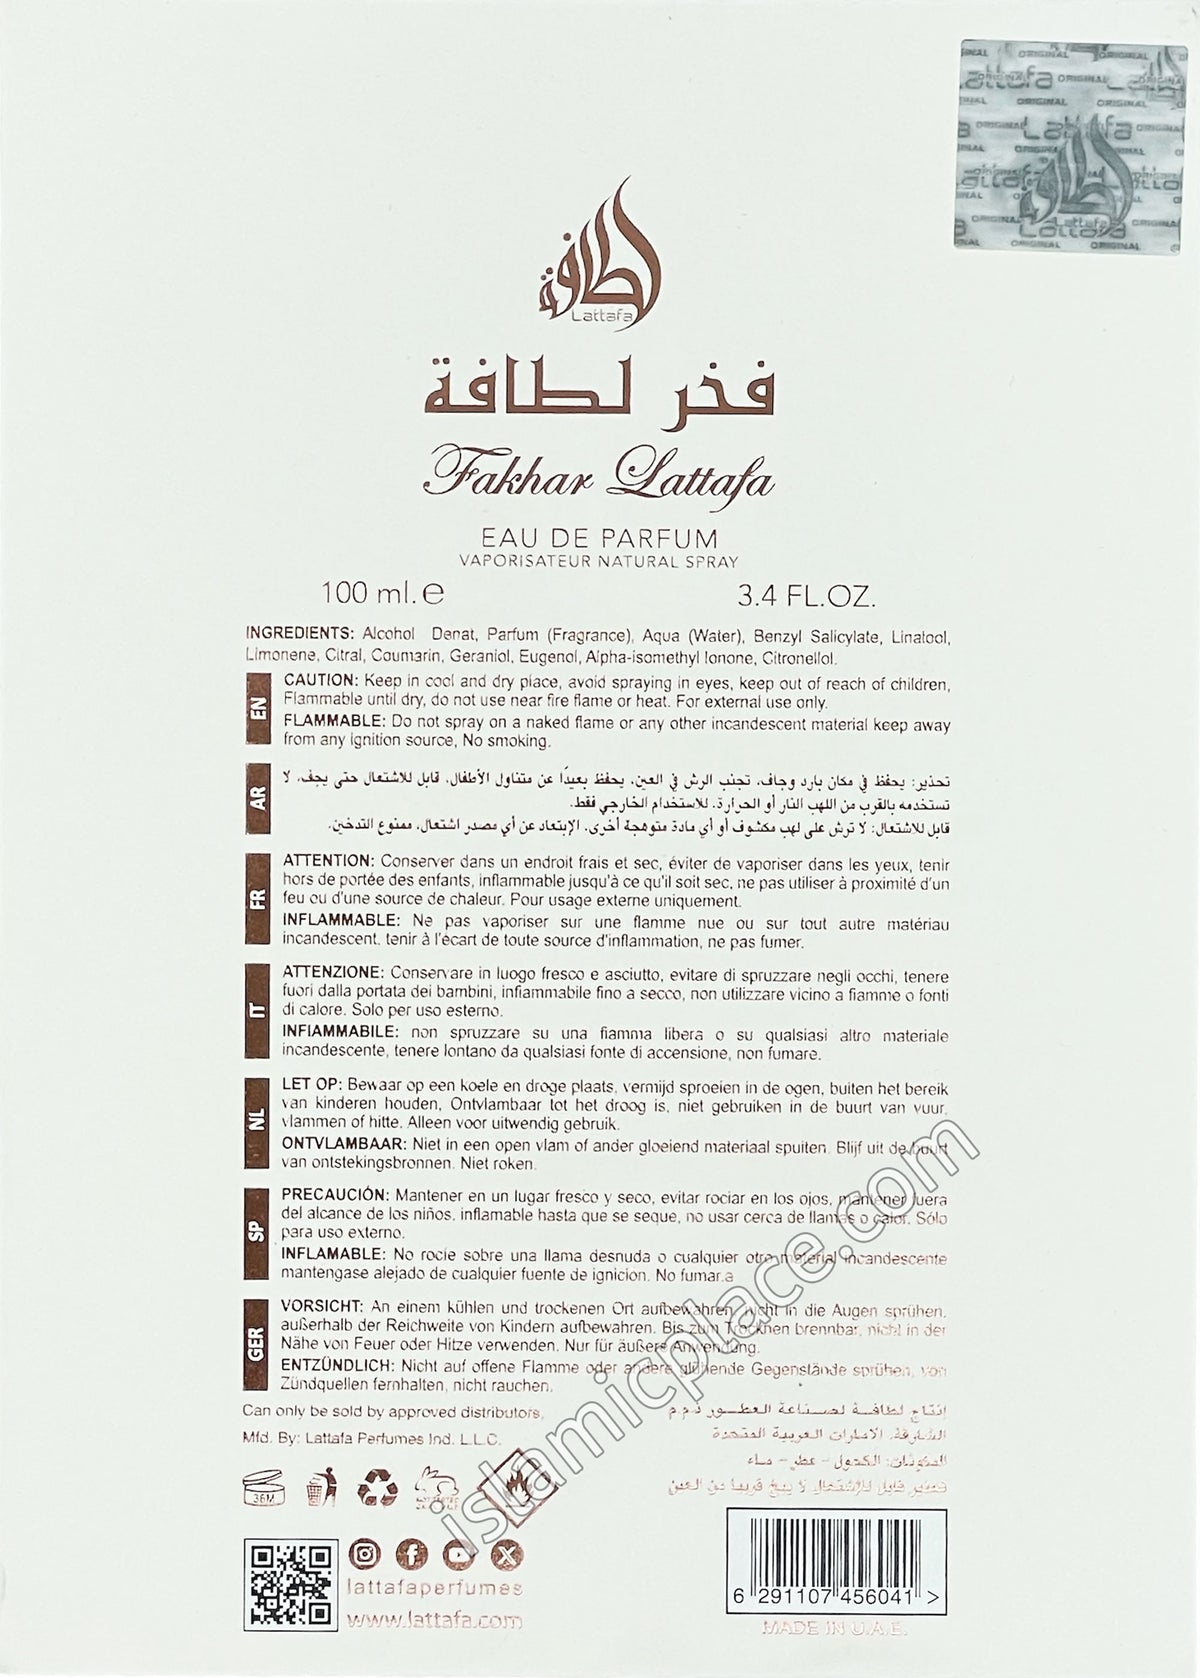 لطافة
Lattafa
ORIGINAL
Lattafa
فخر لطافة
Fakhar Lattafa
EAU DE PARFUM
VAPORISATEUR NATURAL SPRAY
100 ml. ℮ 3.4 FL.OZ.
INGREDIENTS: Alcohol Denat, Parfum (Fragrance), Aqua (Water), Benzyl Salicylate, Linalool,
Limonene, Citral, Coumarin, Geraniol, Eugenol, Alpha-isomethyl Ionone, Citronellol.
EN
CAUTION: Keep in cool and dry place, avoid spraying in eyes, keep out of reach of children,
Flammable until dry, do not use near fire flame or heat. For external use only.
FLAMMABLE: Do not spray on a naked flame or any other incandescent material keep away
from any ignition source, No smoking.
AR
تحذير: يحفظ في مكان بارد وجاف، تجنب الرش في العين، يحفظ بعيداً عن متناول الأطفال، قابل للاشتعال حتى يجف، لا
تستخدمه بالقرب من اللهب النار أو الحرارة. للاستخدام الخارجي فقط.
قابل للاشتعال: لا ترش على لهب مكشوف أو أي مادة متوهجة أخرى، الإبتعاد عن أي مصدر اشتعال، ممنوع التدخين.
FR
ATTENTION: Conserver dans un endroit frais et sec, éviter de vaporiser dans les yeux, tenir
hors de portée des enfants, inflammable jusqu'à ce qu'il soit sec, ne pas utiliser à proximité d'un
feu ou d'une source de chaleur. Pour usage externe uniquement.
INFLAMMABLE: Ne pas vaporiser sur une flamme nue ou sur tout autre matériau
incandescent. tenir à l'écart de toute source d'inflammation, ne pas fumer.
IT
ATTENZIONE: Conservare in luogo fresco e asciutto, evitare di spruzzare negli occhi, tenere
fuori dalla portata dei bambini, infiammabile fino a secco, non utilizzare vicino a fiamme o fonti
di calore. Solo per uso esterno.
INFIAMMABILE: non spruzzare su una fiamma libera o su qualsiasi altro materiale
incandescente, tenere lontano da qualsiasi fonte di accensione, non fumare.
NL
LET OP: Bewaar op een koele en droge plaats, vermijd sproeien in de ogen, buiten het bereik
van kinderen houden, Ontvlambaar tot het droog is, niet gebruiken in de buurt van vuur,
vlammen of hitte. Alleen voor uitwendig gebruik.
ONTVLAMBAAR: Niet in een open vlam of ander gloeiend materiaal spuiten. Blijf uit de buurt
van ontstekingsbronnen. Niet roken.
SP
PRECAUCIÓN: Mantener en un lugar fresco y seco, evitar rociar en los ojos, mantener fuera
del alcance de los niños. inflamable hasta que se seque, no usar cerca de llamas o calor. Sólo
para uso externo.
INFLAMABLE: No rocíe sobre una llama desnuda o cualquier otro material incandescente
mantengase alejado de cualquier fuente de ignicion. No fumar.a
GER
VORSICHT: An einem kühlen und trockenen Ort aufbewahren, nicht in die Augen sprühen,
außerhalb der Reichweite von Kindern aufbewahren. Bis zum Trocknen brennbar, nicht in der
Nähe von Feuer oder Hitze verwenden. Nur für äußere Anwendung.
ENTZÜNDLICH: Nicht auf offene Flamme oder andere glühende Gegenstände sprühen, von
Zündquellen fernhalten, nicht rauchen.
Can only be sold by approved distributors,
Mfd. By: Lattafa Perfumes Ind. L.L.C.
إنتاج لطافة لصناعة العطور ذ.م.م
الشارقة، الامارات العربية المتحدة
المكونات: الكحول - عطر - ماء
تحذير قابل للاشتعال لا يبخ قريبا من العين
36M
lattafaperfumes
www.lattafa.com
6 291107 456041 >
MADE IN U.A.E.
islamicplace.com